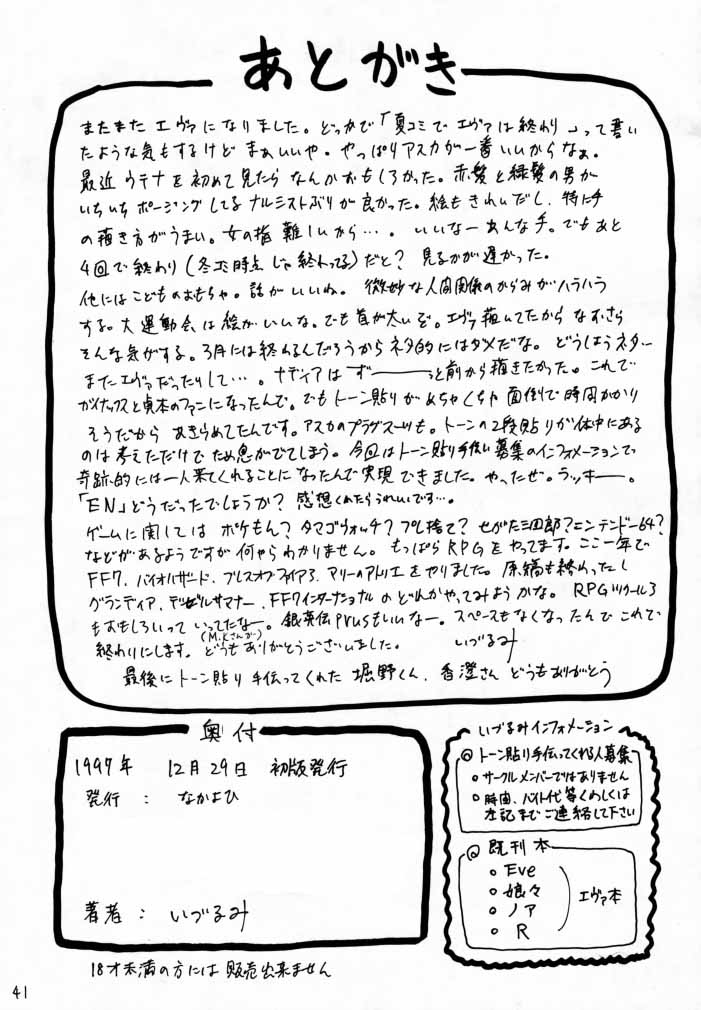 あとがき
またまたエヴァになりました。どっかで「夏コミでエヴァは終わり」って書い
たような気もするけどまぁいいや。やっぱりアスカが一番いいからなぁ。
最近ウテナを初めて見たらなんかおもしろかった。赤髪と緑髪の男が
いちいちポージングしてるナルシストぶりが良かった。絵もきれいだし、特に手
の描き方がうまい。女の指難しいから…。いいなーあんな手。でもあと
4回で終わり(冬コミ時点じゃ終わってる)だと? 見るのが遅かった。
他にはこどものおもちゃ。話がいいね。微妙な人間関係のからみがハラハラ
する。大運動会は絵がいいな。でも首が太いぞ。エヴァ描いてたからなおさら
そんな気がする。3月には終わるんだろうからネタ的にはダメだな。どうしようネタ…
またエヴァだったりして…。ナディアはず―――っと前から描きたかった。これで
ガイナックスと貞本のファンになったんで。でもトーン貼りがめちゃくちゃ面倒で時間かかり
そうだからあきらめてたんです。アスカのプラグスーツも。トーンの2段貼りが体中にある
のは考えただけでため息がでてしまう。今回はトーン貼り手伝い募集のインフォメーションで
奇跡的には一人来てくれることになったんで実現できました。やったぜ。ラッキー。
「EN」どうだったでしょうか? 感想くれたらうれしいです…。
ゲームに関してはポケもん? タマゴウォッチ? プレ捨て? せがた三四郎? ニンテンドー64?
などがあるようですが何やらわかりません。もっぱらRPGをやってます。ここ一年で
FF7、バイオハザード、ブレスオブファイア3、マリーのアトリエをやりました。原稿も終わったし
グランディア、デビルサマナー、FF7インターナショナルのどれかやってみようかな。RPGツクール3
もおもしろいっていってたなー。銀英伝PLUSもいいなー。スペースもなくなったんでこれで
(M.Kさんが)
終わりにします。どうもありがとうございました。 いづるみ
最後にトーン貼り手伝ってくれた堀野くん、香澄さんどうもありがとう
奥付
1997年 12月29日 初版発行
発行: なかよひ
著者: いづるみ
18才未満の方には販売出来ません
いづるみインフォメーション
◎トーン貼り手伝ってくれる人募集
○サークルメンバーではありません
○時間、バイト代等くわしくは
左記までご連絡して下さい
◎既刊本
○Eve
○娘々
○ノア
○R
エヴァ本
41